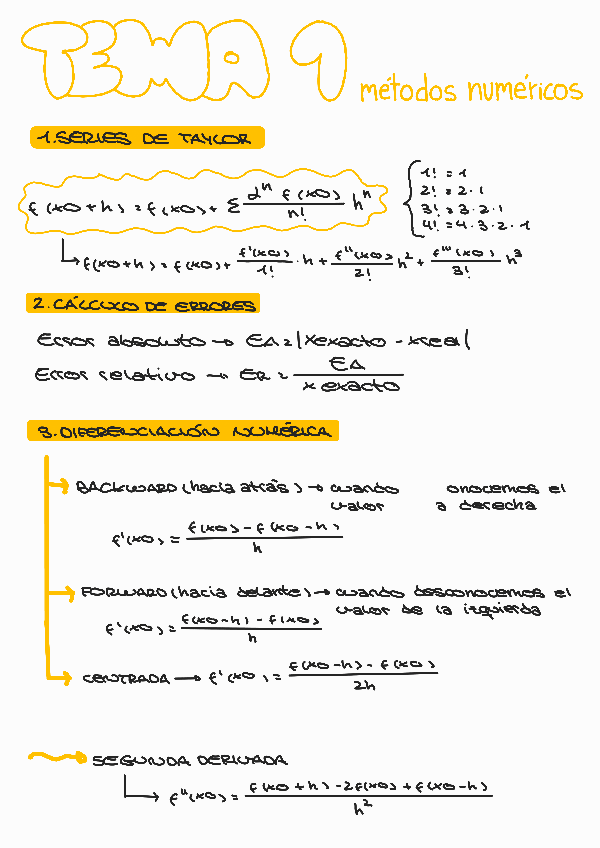 TEMA 1
métodos numéricos
1. SERIES DE TAYLOR
f(x0+h) = f(x0) + Σ d^n f(x0) / n! h^n
1! = 1
2! = 2·1
3! = 3·2·1
4! = 4·3·2·1
f(x0+h) = f(x0) + f'(x0)/1! · h + f''(x0)/2! h² + f'''(x0)/3! h³
2. CÁLCULO DE ERRORES
Error absoluto → EA = |xexacto - xreal|
Error relativo → ER = EA / x exacto
3. DIFERENCIACIÓN NUMÉRICA
BACKWARD (hacia atrás) → cuando onocemos el
valor a derecha
f'(x0) = f(x0) - f(x0-h) / h
FORWARD (hacia delante) → cuando desconocemos el
valor de la izquierda
f'(x0) = f(x0-h) - f(x0) / h
CENTRADA → f'(x0) = f(x0-h) - f(x0) / 2h
SEGUNDA DERIVADA
f''(x0) = f(x0+h) - 2f(x0) + f(x0-h) / h²